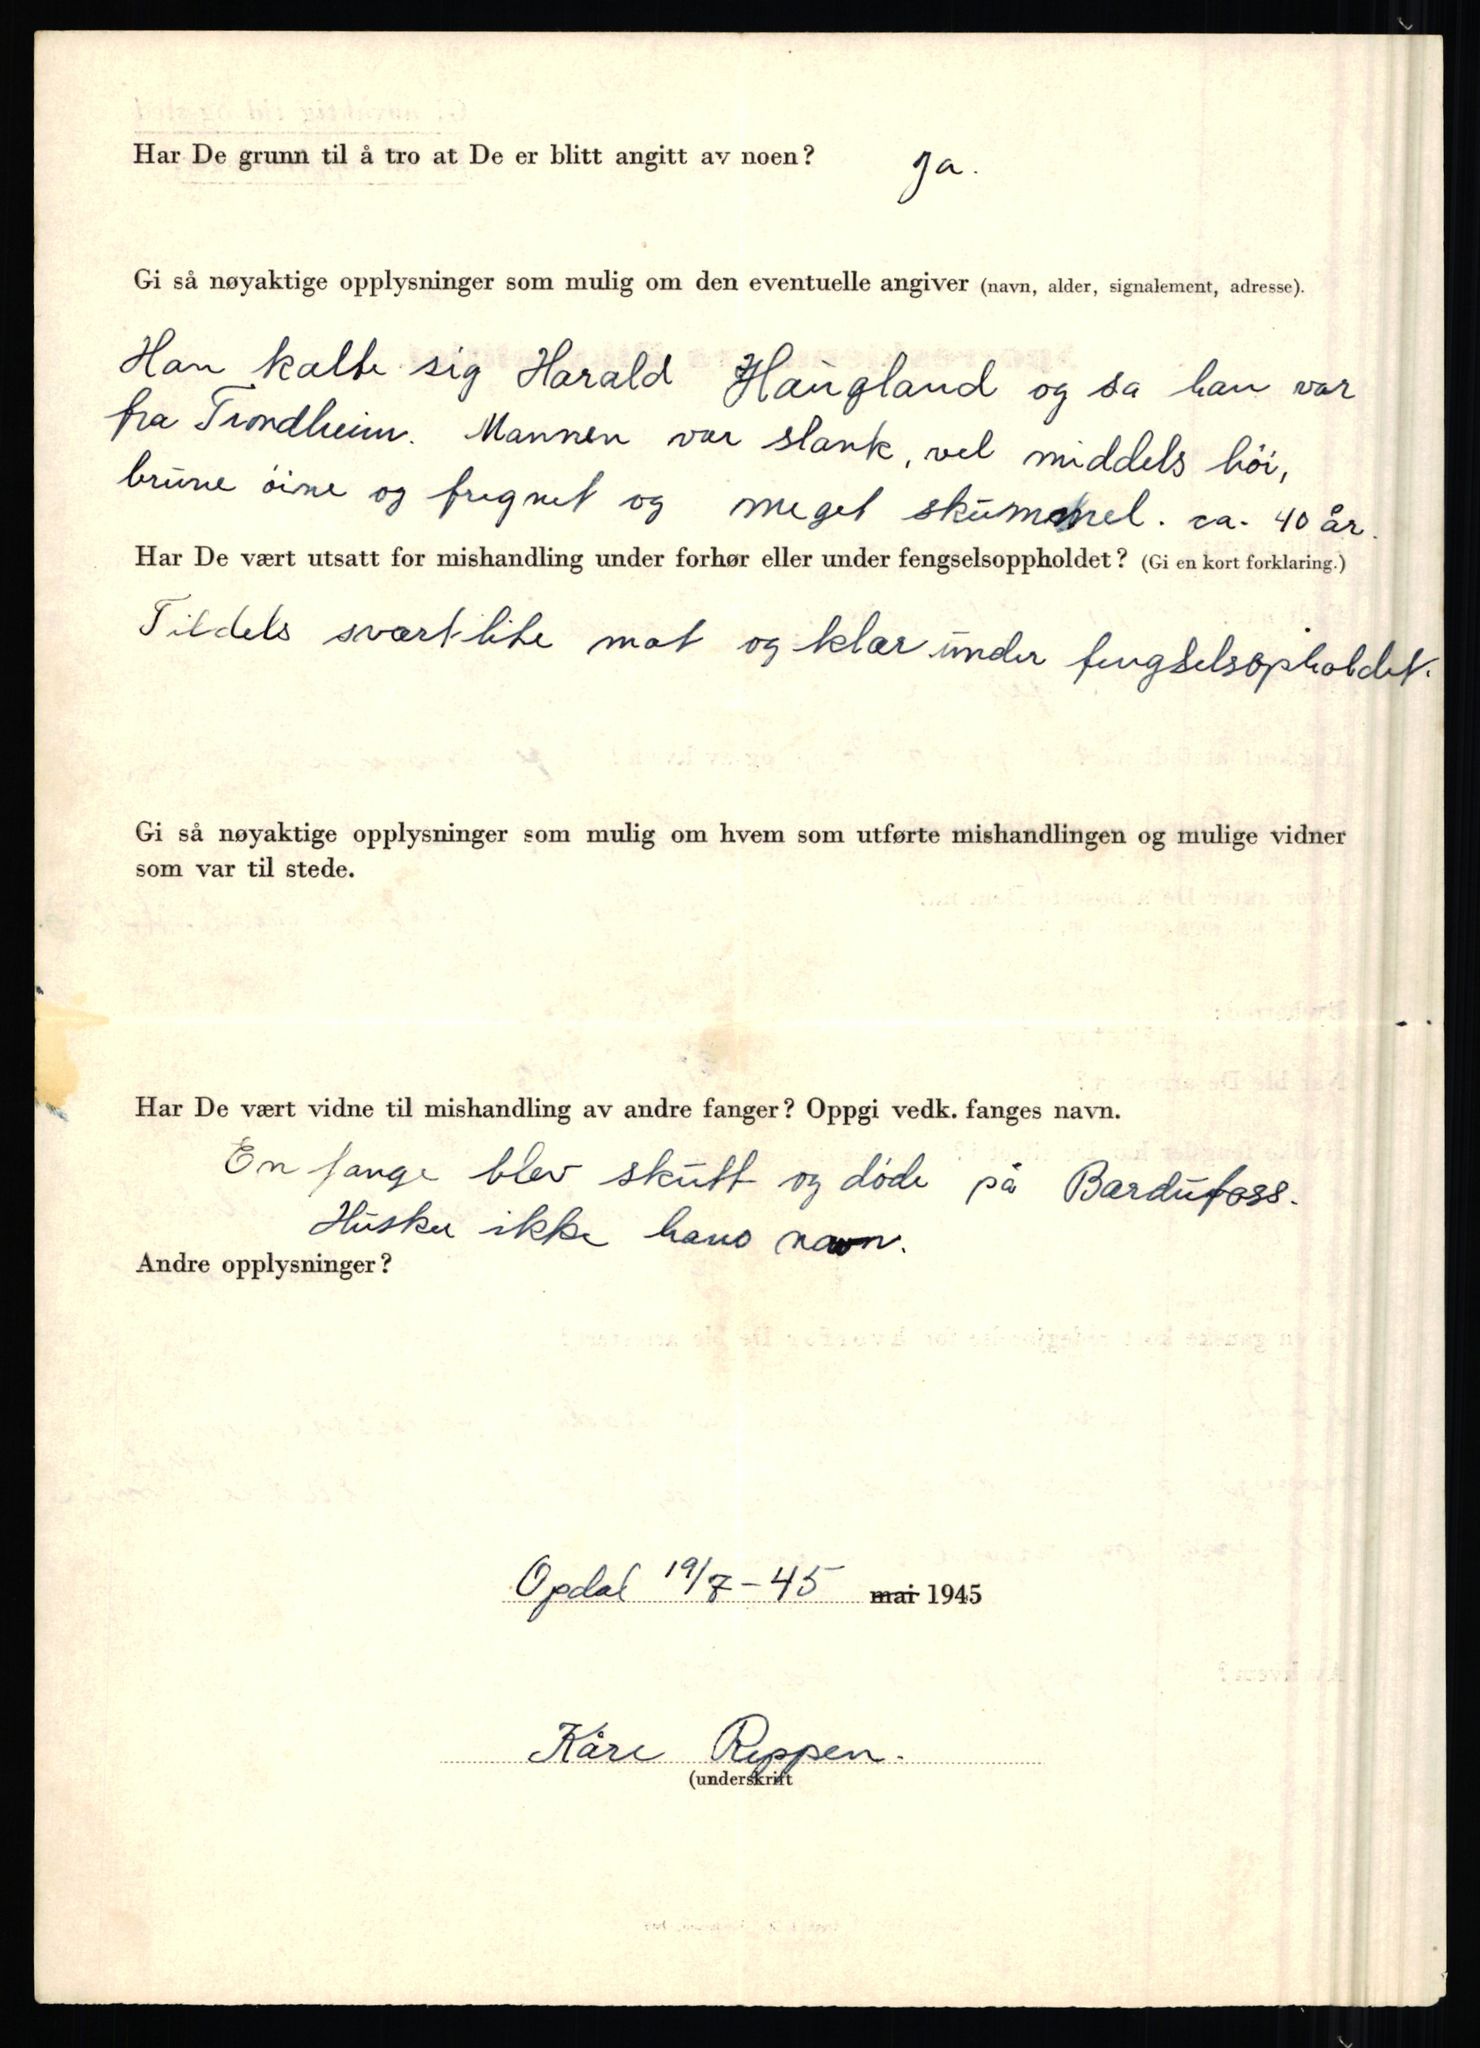 Har De grunn til å tro at De er blitt angitt av noen? Ja.
Gi så nøyaktige opplysninger som mulig om den eventuelle angiver (navn, alder, signalement, adresse).
Han kalte sig Harald Haugland og sa han var
fra Trondheim. Mannen var slank, vel middels höi,
brune öine og fregnet og meget skummel. ca. 40 år.
Har De vært utsatt for mishandling under forhør eller under fengselsoppholdet? (Gi en kort forklaring.)
Tildels svært lite mat og klær under fengselsopholdet.
Gi så nøyaktige opplysninger som mulig om hvem som utførte mishandlingen og mulige vidner
som var til stede.
Har De vært vidne til mishandling av andre fanger? Oppgi vedk. fanges navn.
En fange blev skutt og døde på Bardufoss.
Husker ikke hans navn.
Andre opplysninger?
Opdal 19/7-45 mai 1945
Kåre Reppen.
(underskrift